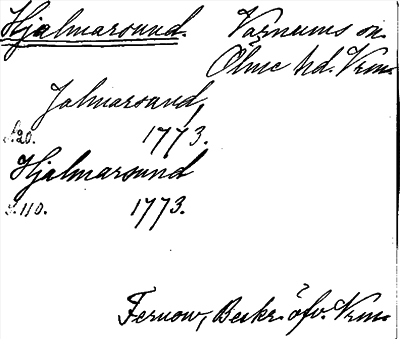 Hjalmarsund. Varnums sn.
Ölme hd. Vrm.
Jalmarsund,
S.20. 1773.
Hjalmarsund
S.110. 1773.
Fernow, Beskr. öfv. Vrm.